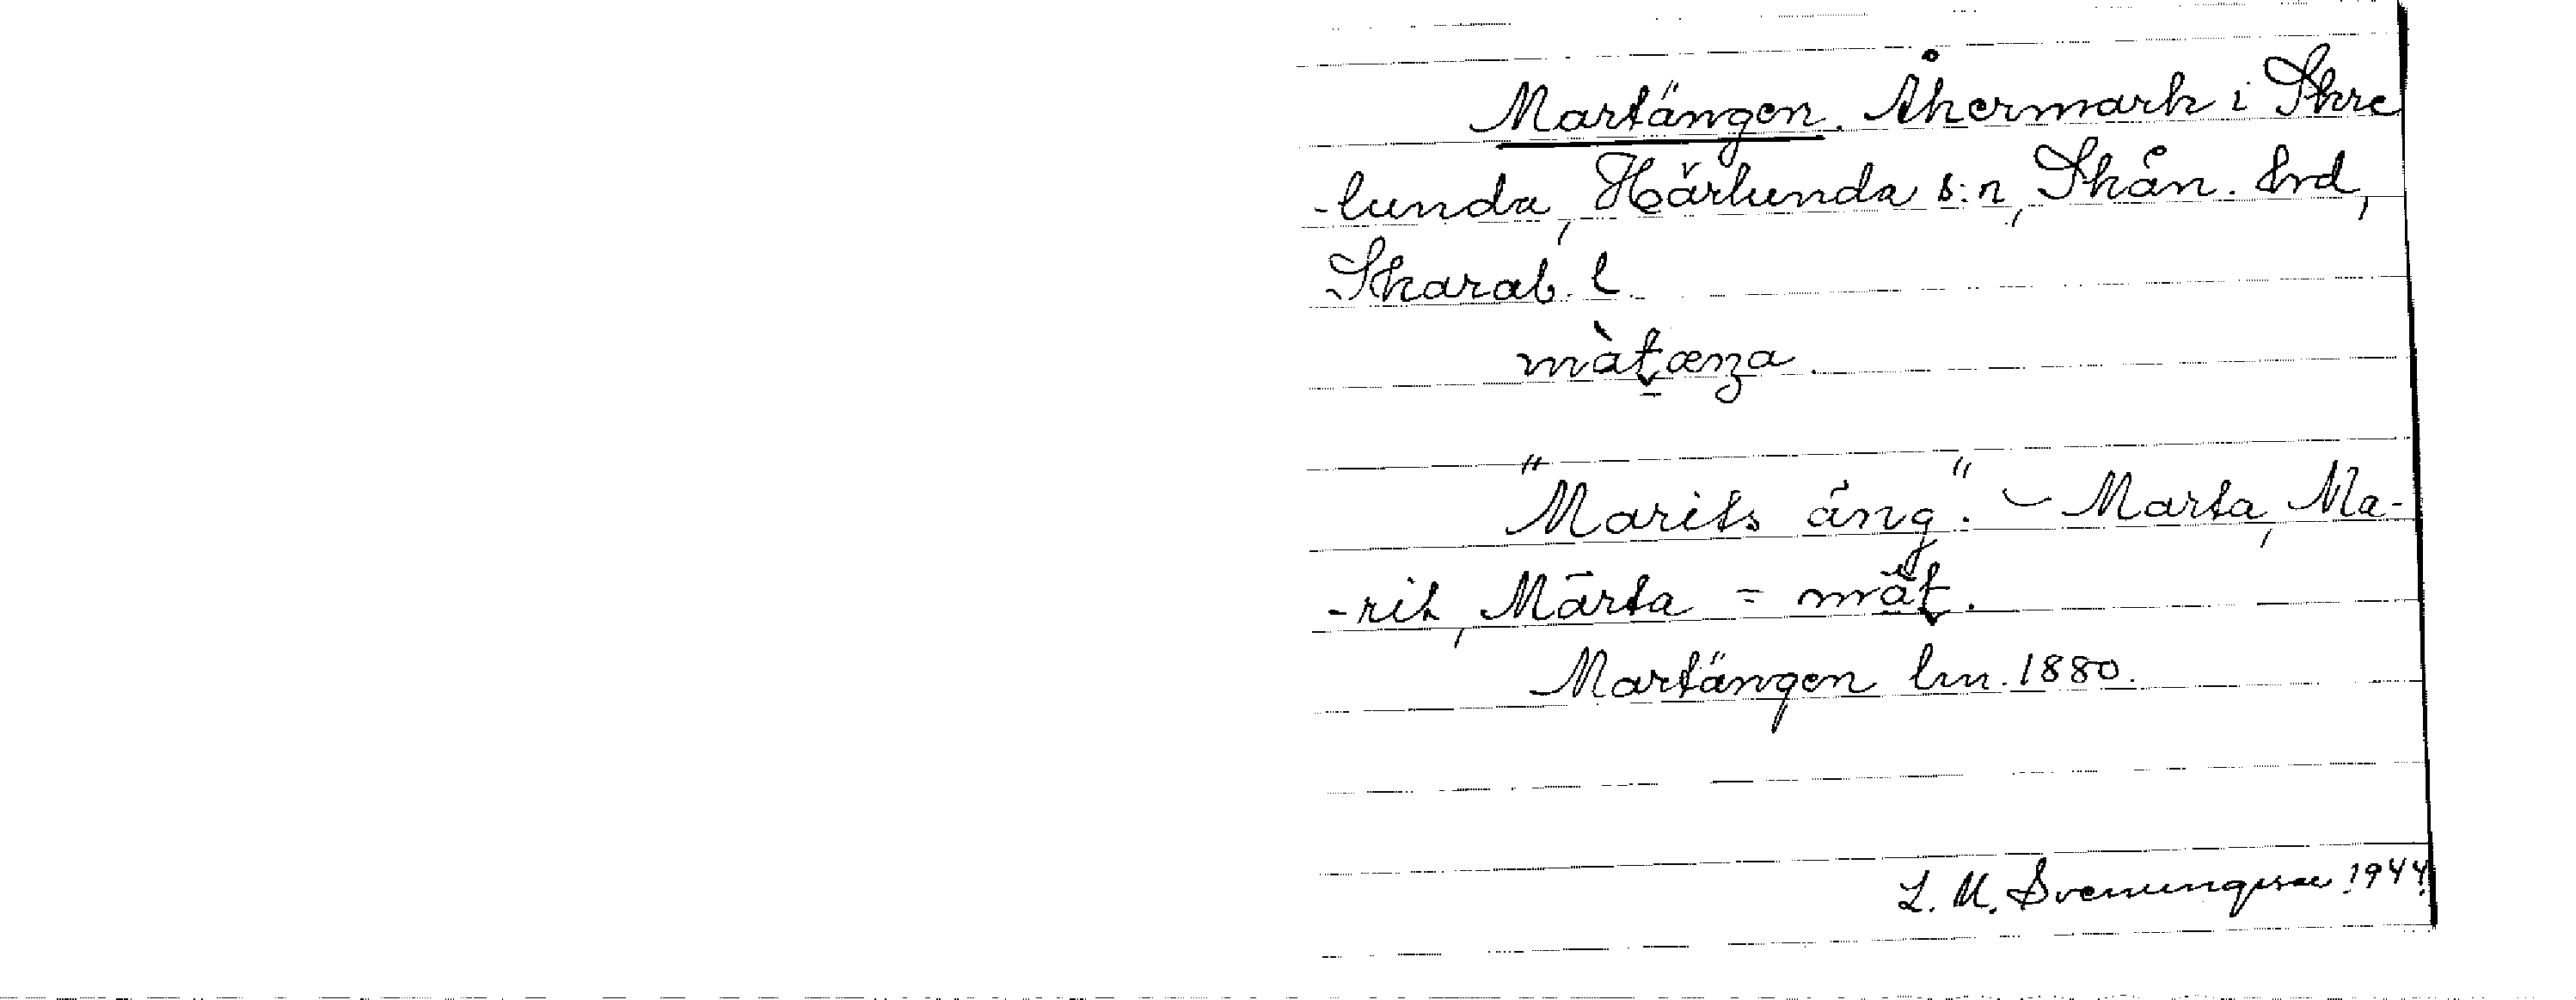 Martängen. Åkermark i Skre
-lunda, Härlunda s:n, Skån. hrd,
Skarab. l.
màtæŋa.
"Marits äng". – Marta, Ma-
-rit, Märta = mat.
Martängen lm. 1880.
L. M. Svenungsson 1944.